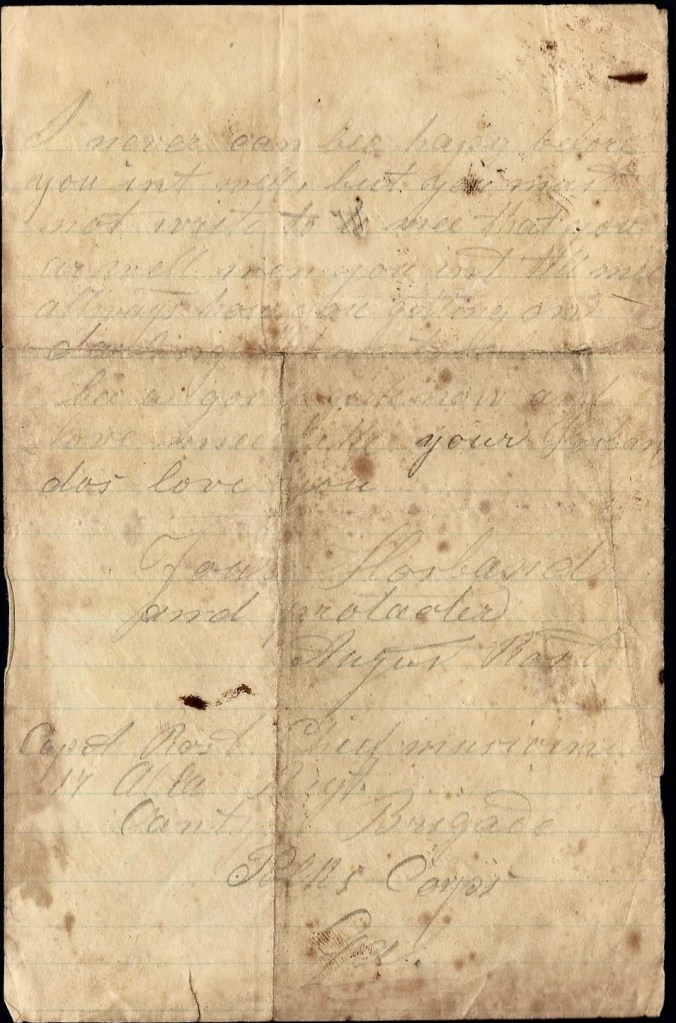 I never can bee hapy before
you int well, but you must
not write to mee that you
ar well wen you int till mee
allways how you gitting on
darling
be a good now and
love mee like your Hosban
dos love you
Your Hosband
and protacter
August Rost
Capt Rost Chief musicion
17 Ala Regt.
Cant Brigade
Polks Corps
Ga.